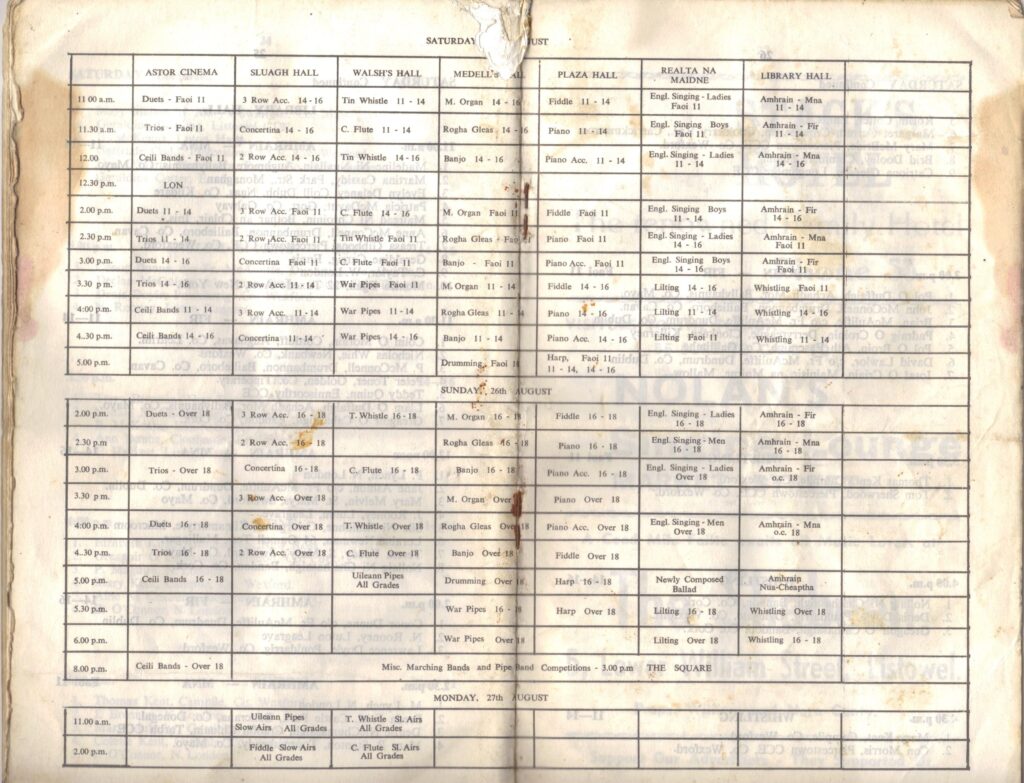 SATURDAY UST
ASTOR CINEMA SLUAGH HALL WALSH'S HALL MEDELL'S HALL PLAZA HALL REALTA NA MAIDNE LIBRARY HALL
11 00 a.m. Duets - Faoi 11 3 Row Acc. 14-16 Tin Whistle 11 - 14 M. Organ 14 - 16 Fiddle 11 - 14 Engl. Singing - Ladies Faoi 11 Amhrain - Mna 11 - 14
11.30 a.m. Trios - Faoi 11 Concertina 14 - 16 C. Flute 11 - 14 Rogha Gleas - 14 - 16 Piano 11 - 14 Engl. Singing Boys Faoi 11 Amhrain - Fir 11 - 14
12.00 Ceili Bands - Faoi 11 2 Row Acc. 14 - 16 Tin Whistle 14 - 16 Banjo 14 - 16 Piano Acc. 11 - 14 Engl. Singing - Ladies 11 - 14 Amhrain - Mna 14 - 16
12.30 p.m. LON
2.00 p.m. Duets 11 - 14 3 Row Acc. Faoi 11 C. Flute 14 - 16 M. Organ Faoi 11 Fiddle Faoi 11 Engl. Singing Boys 11 - 14 Amhrain - Fir 14 - 16
2.30 p.m Trios 11 - 14 2 Row Acc. Faoi 11 Tin Whistle Faoi 11 Rogha Gleas - Faoi 11 Piano Faoi 11 Engl. Singing - Ladies 14 - 16 Amhrain - Mna Faoi 11
3.00 p.m. Duets 14 - 16 Concertina Faoi 11 C. Flute Faoi 11 Banjo - Faoi 11 Piano Acc. Faoi 11 Engl. Singing Boys 14 - 16 Amhrain - Fir Faoi 11
3.30 p.m. Trios 14 - 16 2 Row Acc. 11 - 14 War Pipes Faoi 11 M. Organ 11 - 14 Fiddle 14 - 16 Lilting 14 - 16 Whistling Faoi 11
4:00 p.m. Ceili Bands 11 - 14 3 Row Acc. 11 - 14 War Pipes 11 - 14 Rogha Gleas 11 - 14 Piano 14 - 16 Lilting 11 - 14 Whistling 14 - 16
4..30 p.m. Ceili Bands 14 - 16 Concertina 11 - 14 War Pipes 14 - 16 Banjo 11 - 14 Piano Acc. 14 - 16 Lilting Faoi 11 Whistling 11 - 14
5.00 p.m. Drumming, Faoi 1 Harp, Faoi 11 11 - 14, 14 - 16
SUNDAY, 26th AUGUST
2.00 p.m. Duets - Over 18 3 Row Acc. 16 - 18 T. Whistle 16 - 18 M. Organ 16 - 18 Fiddle 16 - 18 Engl. Singing - Ladies 16 - 18 Amhrain - Fir 16 - 18
2.30 p.m 2 Row Acc. 16 - 18 Rogha Gleas 16 - 18 Piano 16 - 18 Engl. Singing - Men 16 - 18 Amhrain - Mna 16 - 18
3.00 p.m. Trios - Over 18 Concertina 16 - 18 C. Flute 16 - 18 Banjo 16 - 18 Piano Acc 16 - 18 Engl. Singing - Ladies Over 18 Amhrain - Fir o.c. 18
3.30 p m. 3 Row Acc. Over 18 M. Organ Over Piano Over 18
4:00 p.m. Duets 16 - 18 Concertina Over 18 T. Whistle Over 18 Rogha Gleas Over 18 Piano Acc. Over 18 Engl. Singing - Men Over 18 Amhrain - Mna o.c. 18
4..30 p.m. Trios 16 - 18 2 Row Acc. Over 18 C. Flute Over 18 Banjo Over 18 Fiddle Over 18
5.00 p.m. Ceili Bands 16 - 18 Uileann Pipes All Grades Drumming Over 18 Harp 16 - 18 Newly Composed Ballad Amhrain Nua-Cheaptha
5.30 p.m. War Pipes 16 - 18 Harp Over 18 Lilting 16 - 18 Whistling Over 18
6.00 p.m. War Pipes Over 18 Lilting Over 18 Whistling 16 - 18
8.00 p.m. Ceili Bands - Over 18 Misc. Marching Bands and Pipe Band Competitions - 3.00 p.m THE SQUARE
MONDAY, 27th AUGUST
11.00 a.m. Uileann Pipes Slow Airs All Grades T. Whistle Sl. Airs All Grades
2.00 p.m. Fiddle Slow Airs All Grades C. Flute Sl. Airs All Grades